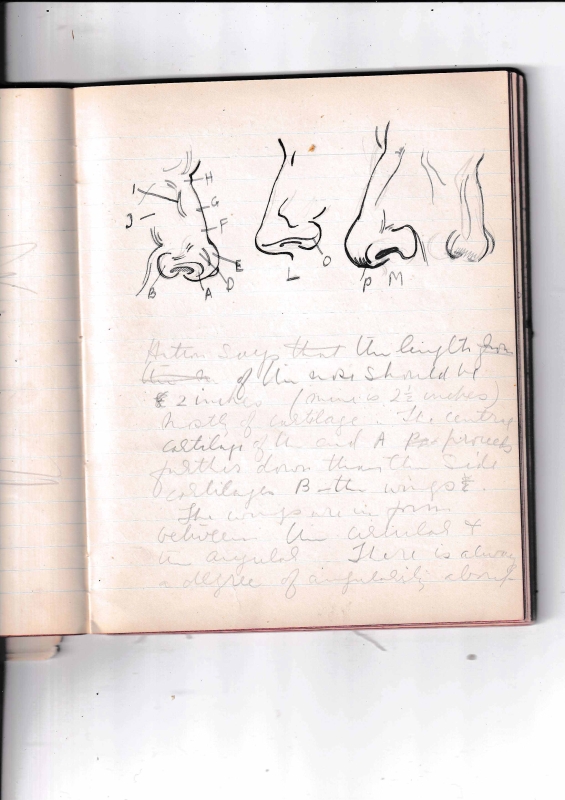 H
I
G
J
F
E
O
D
B
A
L
P
M
says that the length from
of the nose should be
2 inches (mine is 2½ inches)
Mostly of cartilage. The centre
cartilage of the end A proceeds
further down than the side
cartilages B - the wings
The wings are in form
between the circular &
the angular There is always
a degree of angularity about